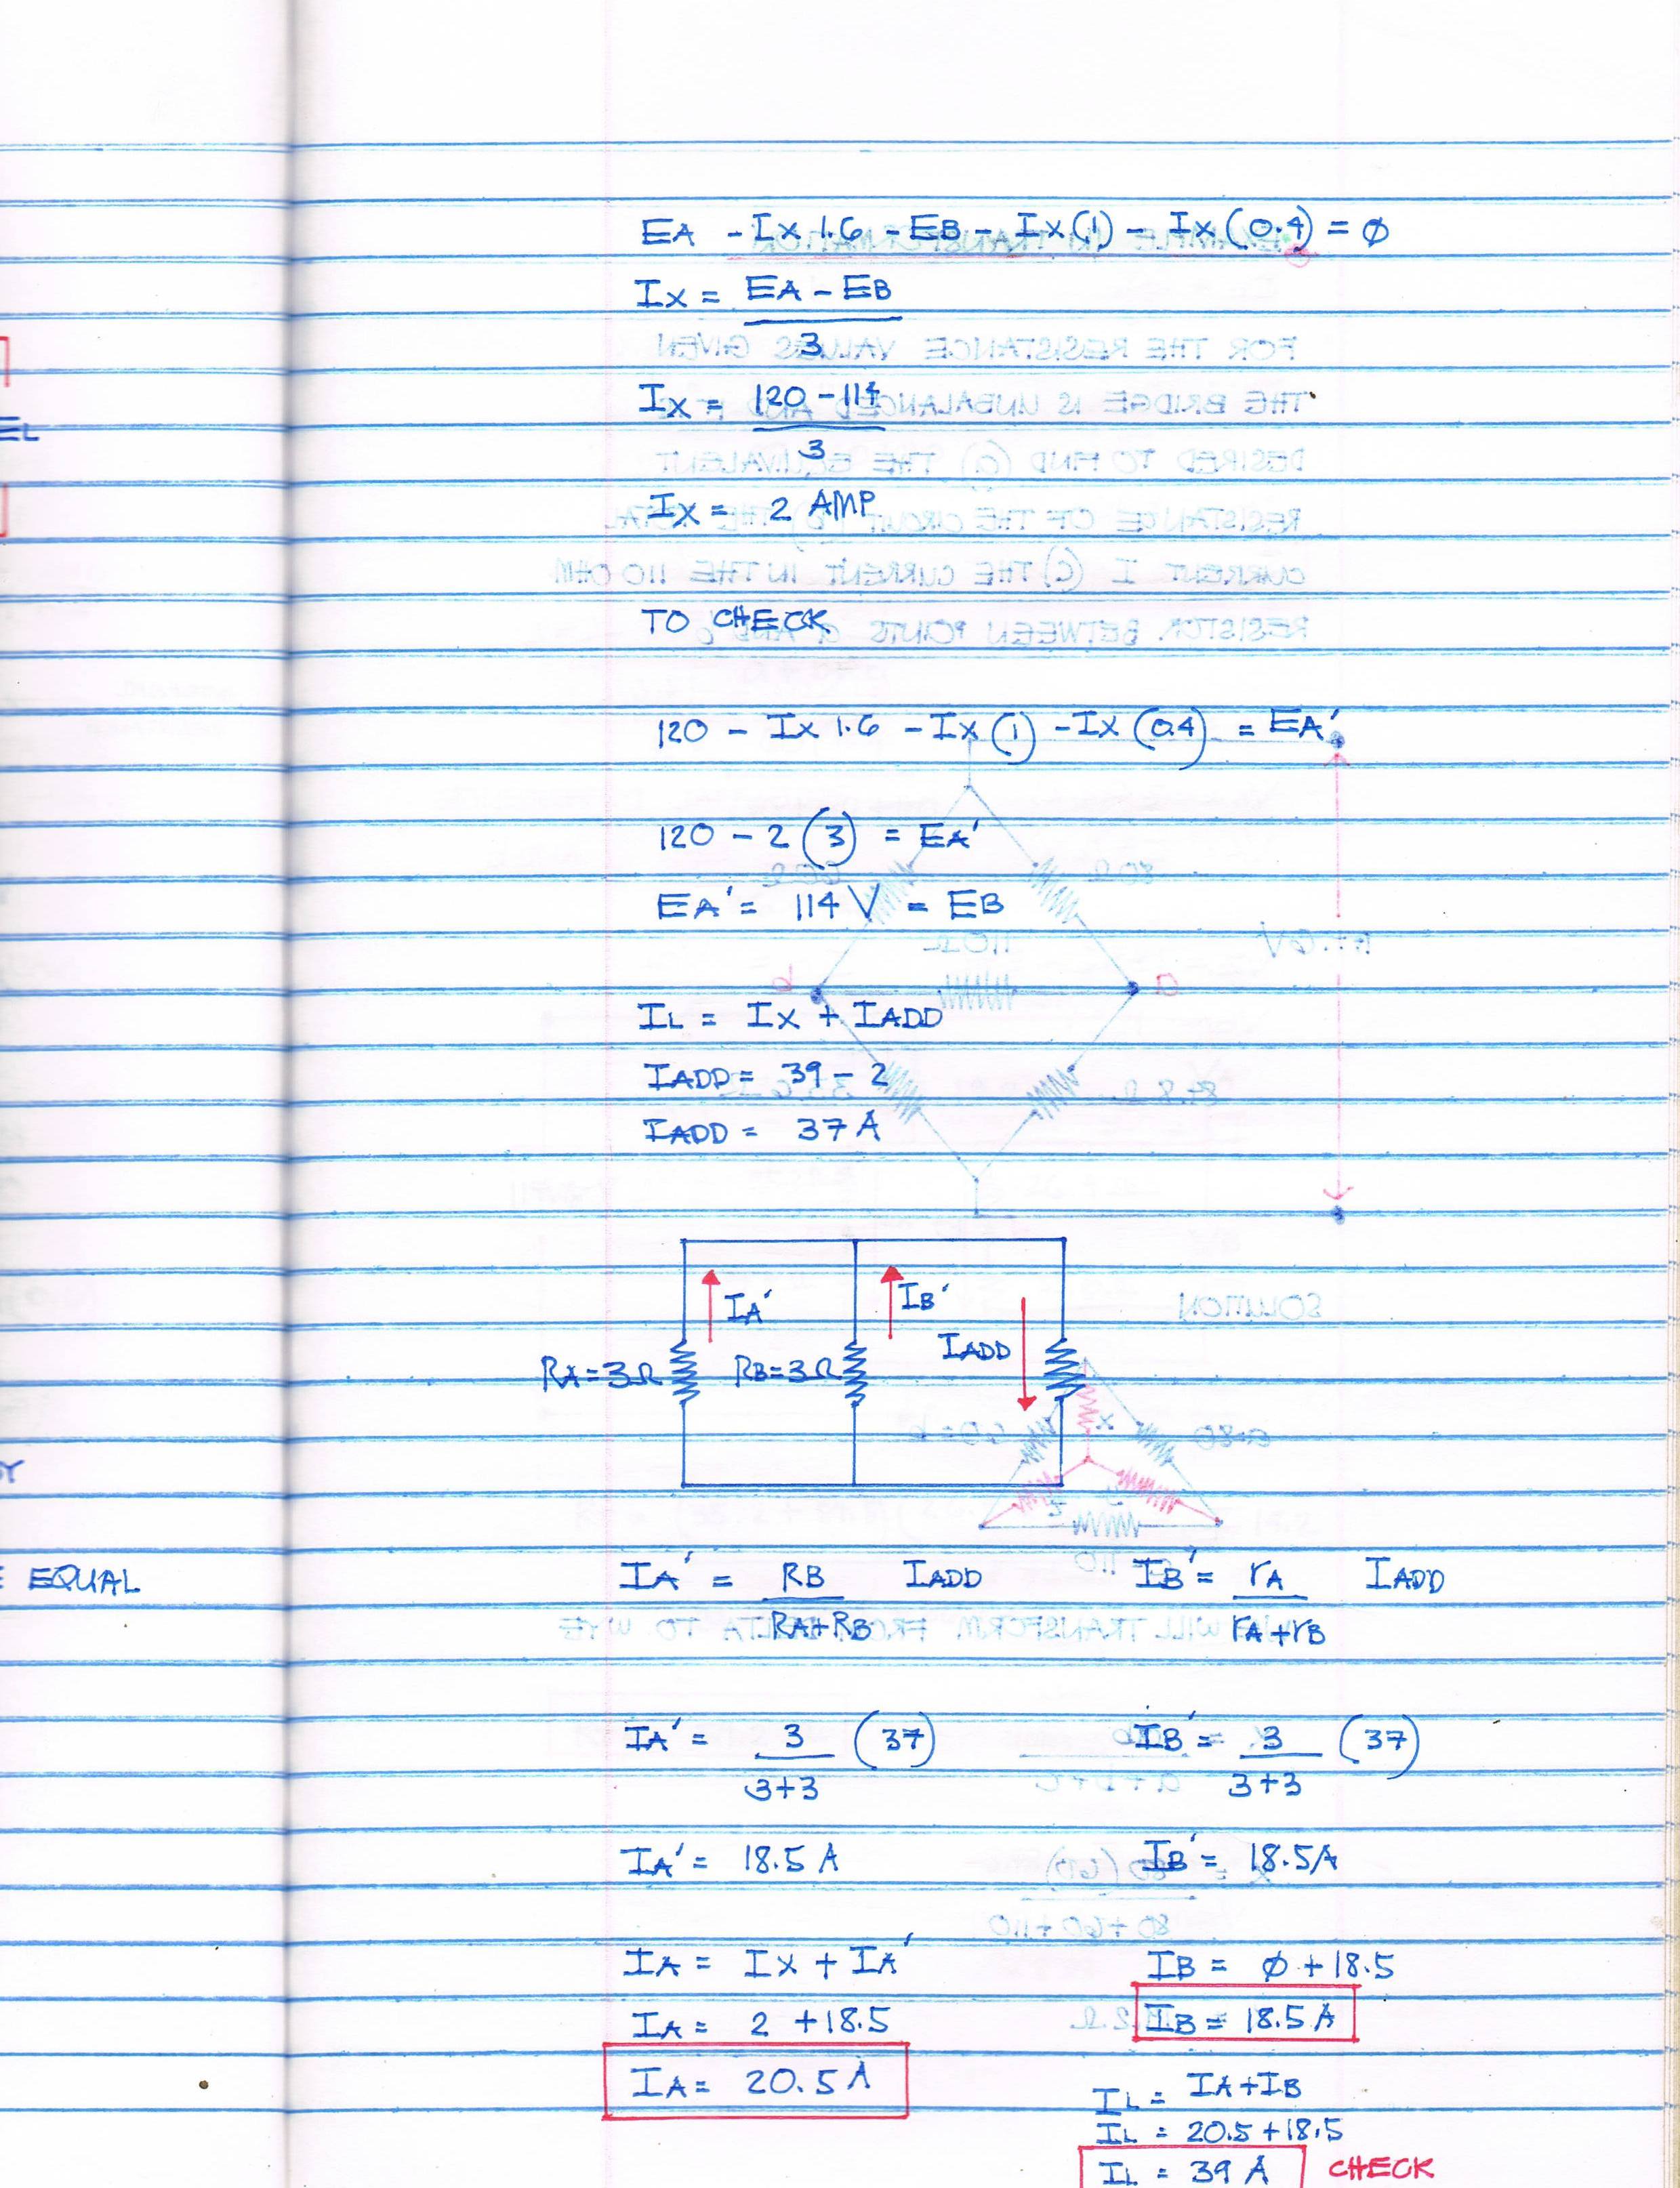 EA - IX 1.6 - EB - IX (1) - IX (0.4) = ø
IX = EA - EB
3
IX = 120 - 114
3
IX = 2 AMP
TO CHECK
120 - IX 1.6 - IX (1) - IX (0.4) = EA'
120 - 2 (3) = EA'
EA' = 114 V = EB
IL = IX + IADD
IADD = 39 - 2
IADD = 37 A
IA' IB' IADD
RA = 3Ω RB = 3Ω
IA' = RB IADD IB' = rA IADD
RA+RB rA + rB
IA' = 3 (37) IB' = 3 (37)
3+3 3+3
IA' = 18.5 A IB' = 18.5A
IA = IX + IA' IB = ø + 18.5
IA = 2 + 18.5 IB = 18.5 A
IA = 20.5 A
IL = IA + IB
IL = 20.5 + 18.5
IL = 39 A CHECK
EL
Y
E EQUAL